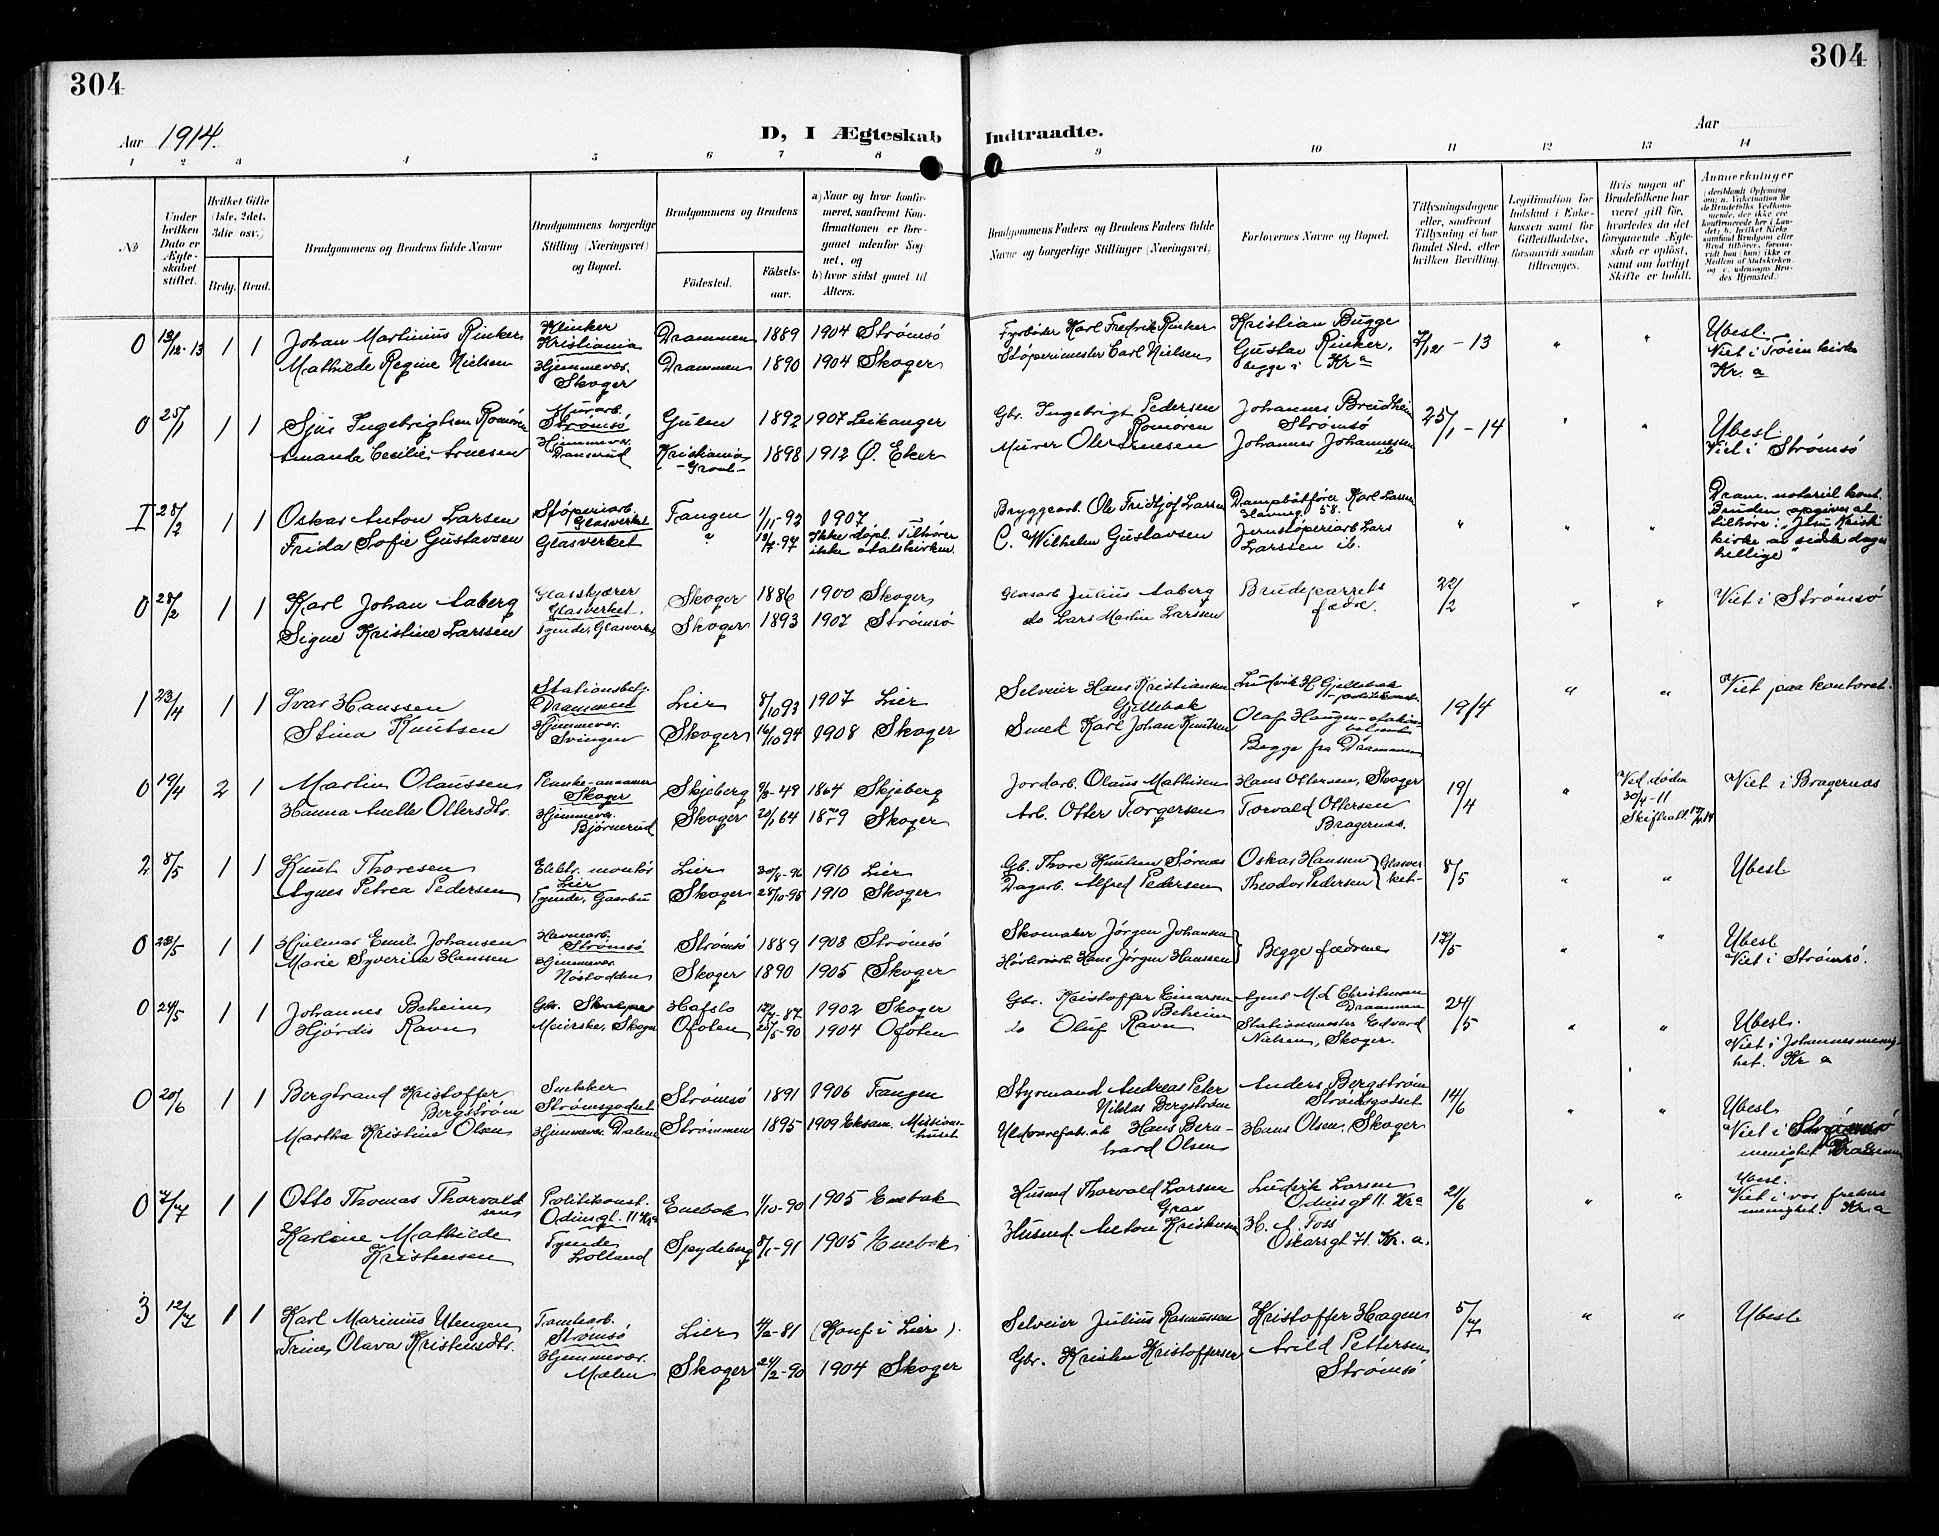 304
304
Aar 1914.
D, I Ægteskab Indtraadte.
Aar
1 2 3 4 5 6 7 8 9 10 11 12 13 14
No.
Under hvilken Dato er Ægteskabet stiftet.
Hvilket Gifte (1ste, 2det, 3die osv.)
Brdg. Brud.
Brudgommens og Brudens fulde Navne
Brudgommens borgerlige Stilling (Næringsvei) og Bopæl.
Brudgommens og Brudens
Födested.
Födselsaar.
a) Naar og hvor konfirmeret, saafremt Konfirmationen er foregaaet udenfor Sognet, og
b) hvor sidst gaaet til Alters.
Brudgommens Faders og Brudens Faders fulde Navne og borgerlige Stillinger (Næringsvei)
Forlovernes Navne og Bopæl.
Tillysningsdagene eller, saafremt Tillysning ei har fundet Sted, efter hvilken Bevilling.
Legitimation for Indskud i Enkekassen samt for Giftetilladelse, forsaavidt saadan tiltrænges.
Hvis nogen af Brudefolkene har været gift før, hvorledes da det foregaaende Ægteskab er oplöst, samt om lovligt Skifte er holdt.
Anmerkninger
0 13/12-13 1 1 Johan Martinius Rinker Klinker Kristiania Drammen 1889 1904 Strømsö Fyrböter Karl Fredrik Rinker Kristian Bugge 7/12 - 13 " " Ubesl.
Mathilde Regine Nielsen Hjemmevær. Skoger Drammen 1890 1904 Skoger Støperimester Carl Nielsen Gustav Rinker, begge i Kr a Viet i Trøien kirke Kr. a
0 25/1 1 1 Sjus Ingebrigtsen Romören Murarb. Strømsö Gulen 1892 1907 Leikanger Gbr. Ingebrigt Pedersen Romören Johannes Breidheim Strømsö 25/1 - 14 " " Ubesl.
Amanda Cecilie Arnesen Hjemmevær. Kristiania 1898 1912 Ø. Eker Murer Ole Arnesen Johannes Johannesen ib. Viet i Strømsö
I 28/2 1 1 Oskar Anton Larsen Støperiarb. Glasverket Tangen 1/11-92 1907 Bryggearb. Ole Fridtjof Larsen Dampbåtfører Karl Larsen Havneg. 58. " " Dram. notariel kont.
Frida Sofie Gustavsen Glasverket " 12/7-97 Ikke döpt. Tilhører ikke statskirken C. Wilhelm Gustavsen Jernstøperiarb. Lars Larssen ib. Bruden opgives at tilhøre: "Jesu Kristi kirke av sidste dages hellige"
0 28/2 1 1 Karl Johan Aaberg Glasskjærer Glasverket Skoger 1886 1900 Skoger Glasarb. Julius Aaberg Brudeparrets fædre. 22/2 " " Viet i Strømsö
Signe Kristine Larssen Tjende, Glasverket Skoger 1893 1907 Strømsö do Lars Martin Larssen
1 23/4 1 1 Ivar Hanssen Stationsbetj. Drammen Lier 8/10 93 1907 Lier Selveier Hans Kristiansen Gjellebæk Ludvik H. Gjellebæk politikonst. 19/4 " " Viet paa kontoret.
Stina Knutsen Hjemmevær. Svingen Skoger 16/10 94 1908 Skoger Smed Karl Johan Knutsen Olaf Haugen Begge fra Drammen
0 19/4 2 1 Martin Olaussen Skoger Skjeberg 9/3-49 1864 Skjeberg Jordarb. Olaus Mathisen Hans Ottersen, Skoger 19/4 " Ved døden 30/4-11 Viet i Bragernæs
Hanna Anette Ottersdtr. Hjemmevær. Bjørnerud Skoger 20/1 64 1879 Skoger Arb. Otter Torgersen Torvald Ottersen Bragernæs.
2 8/5 1 1 Knut Thoresen Elektr. montör Lier Lier 30/8-86 1910 Lier Gb. Thore Knutsen Sørnæs Oskar Hansen Glasverket 8/5 " " Ubesl
Agnes Petrea Pedersen Tjende, Gaarbu Skoger 28/10-95 1910 Skoger Dagarb. Alfred Pedersen Theodor Pedersen
0 23/5 1 1 Hjalmar Emil Johansen Havnearb. Strømsö Strømsö 1889 1903 Strømsö Skomaker Jörgen Johansen Begge fædrene 17/5 " " Ubesl
Marie Syverine Hanssen Hjemmevær. Nøslodden Skoger 1890 1905 Skoger Hans Jörgen Hanssen Viet i Strømsö.
0 24/5 1 1 Johannes Beheim Gbr. Skoger Hafslo 12/4-87 1902 Skoger Gbr. Kristoffer Einarsen Beheim Agent M. L. Christensen Drammen 24/5 " " Ubesl.
Hjördis Ravn Meierske, Skoger Ofoten 25/5-90 1904 Ofoten do Oluf Ravn Stationsmester Edvard Nielsen, Skoger. Viet i Johannesmenighet. Kr a
0 20/6 1 1 Bergtrand Kristoffer Bergström Snekker Strømsgodset Strømsö 1891 1906 Tangen Styrmand Andreas Peter Niklas Bergström Anders Bergström Strömsgodset 14/6 " " Ubesl
Martha Kristine Olsen Hjemmevær. Dalene Strømmen 1895 1909 Eksam. Missionshuset Uldvarefab.arb. Hans Berntrand Olsen Hans Olsen, Skoger Viet i Strømsö menighet
0 7/7 1 1 Otto Thomas Thorvaldsen Politikonst. Odinsgt. 11 Kr a Enebak 1/10-90 1905 Enebak Husmd Thorvald Larsen Grav Ludvik Larsen Odinsgt 11. Kr a 21/6 " " Ubesl.
Karline Mathilde Kristensen Tjende Lolland Spydeberg 8/1-91 1905 Enebak Husmd. Anton Kristensen H. A. Foss Oskarsgt 71. Kr. a. Viet i vor frelsers menighet. Kr. a
3 12/7 1 1 Karl Marinius Utengen Tomtearb. Strømsö Lier 4/2-81 (Konf i Lier). Selveier Julius Rasmussen Kristoffer Hagen 5/7 " " Ubesl
Trine Olava Kristensdtr. Hjemmevær. Mælen Skoger 24/2-90 1904 Skoger Gbr. Kristen Kristoffersen Arild Pettersen Strømsö